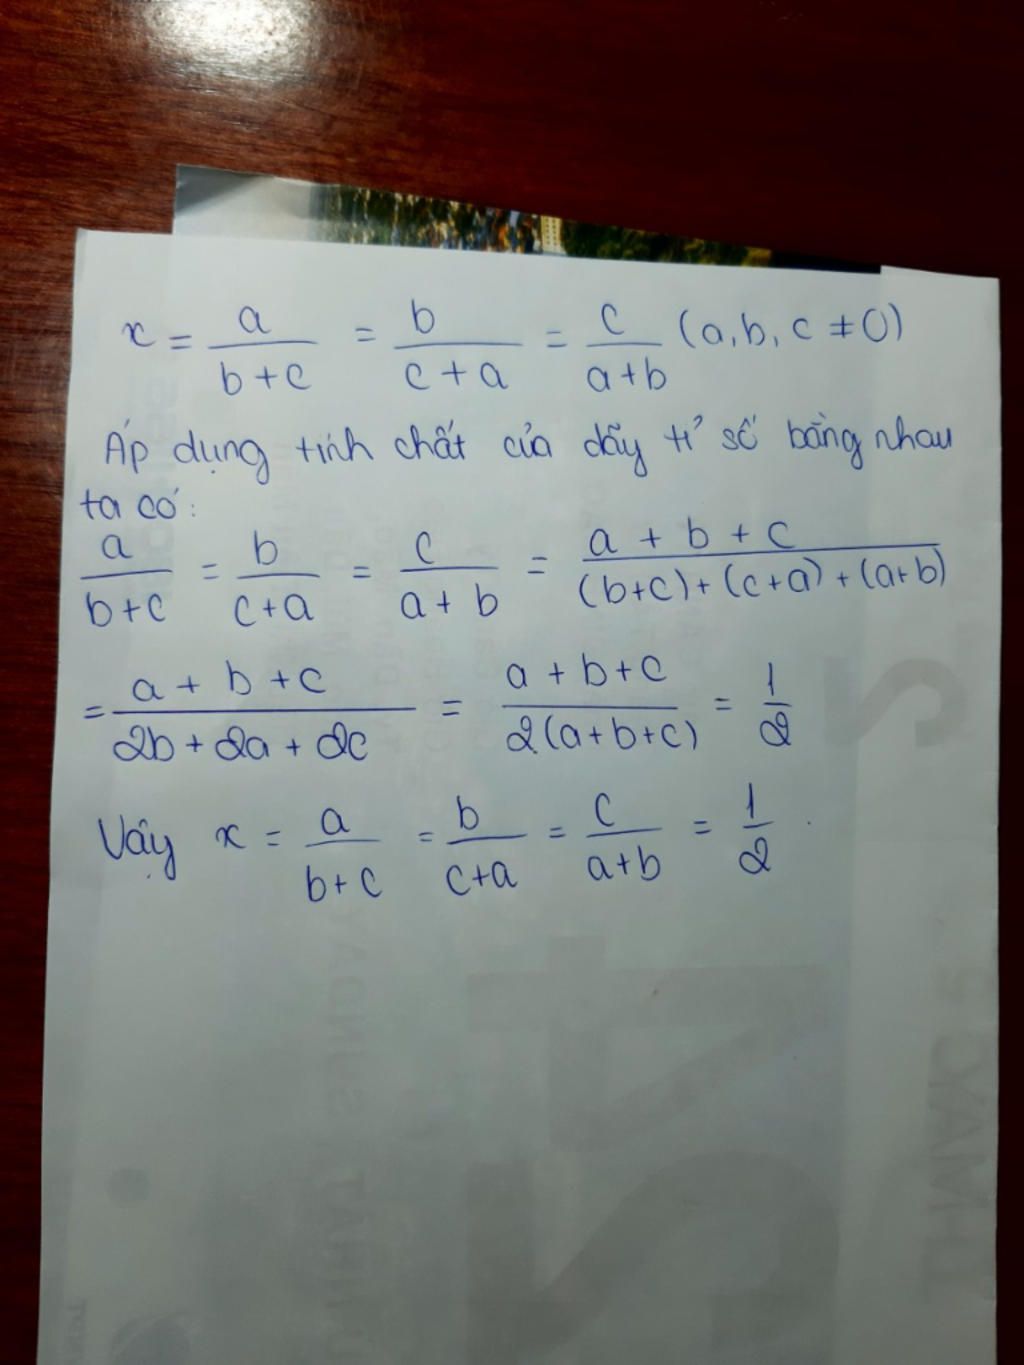 x = a/(b+c) = b/(c+a) = c/(a+b) (a, b, c ≠ 0)
Áp dụng tính chất của dãy tỉ số bằng nhau
ta có:
a/(b+c) = b/(c+a) = c/(a+b) = (a+b+c)/((b+c)+(c+a)+(a+b))
= (a+b+c)/(2b+2a+2c) = (a+b+c)/(2(a+b+c)) = 1/2
Vậy x = a/(b+c) = b/(c+a) = c/(a+b) = 1/2.